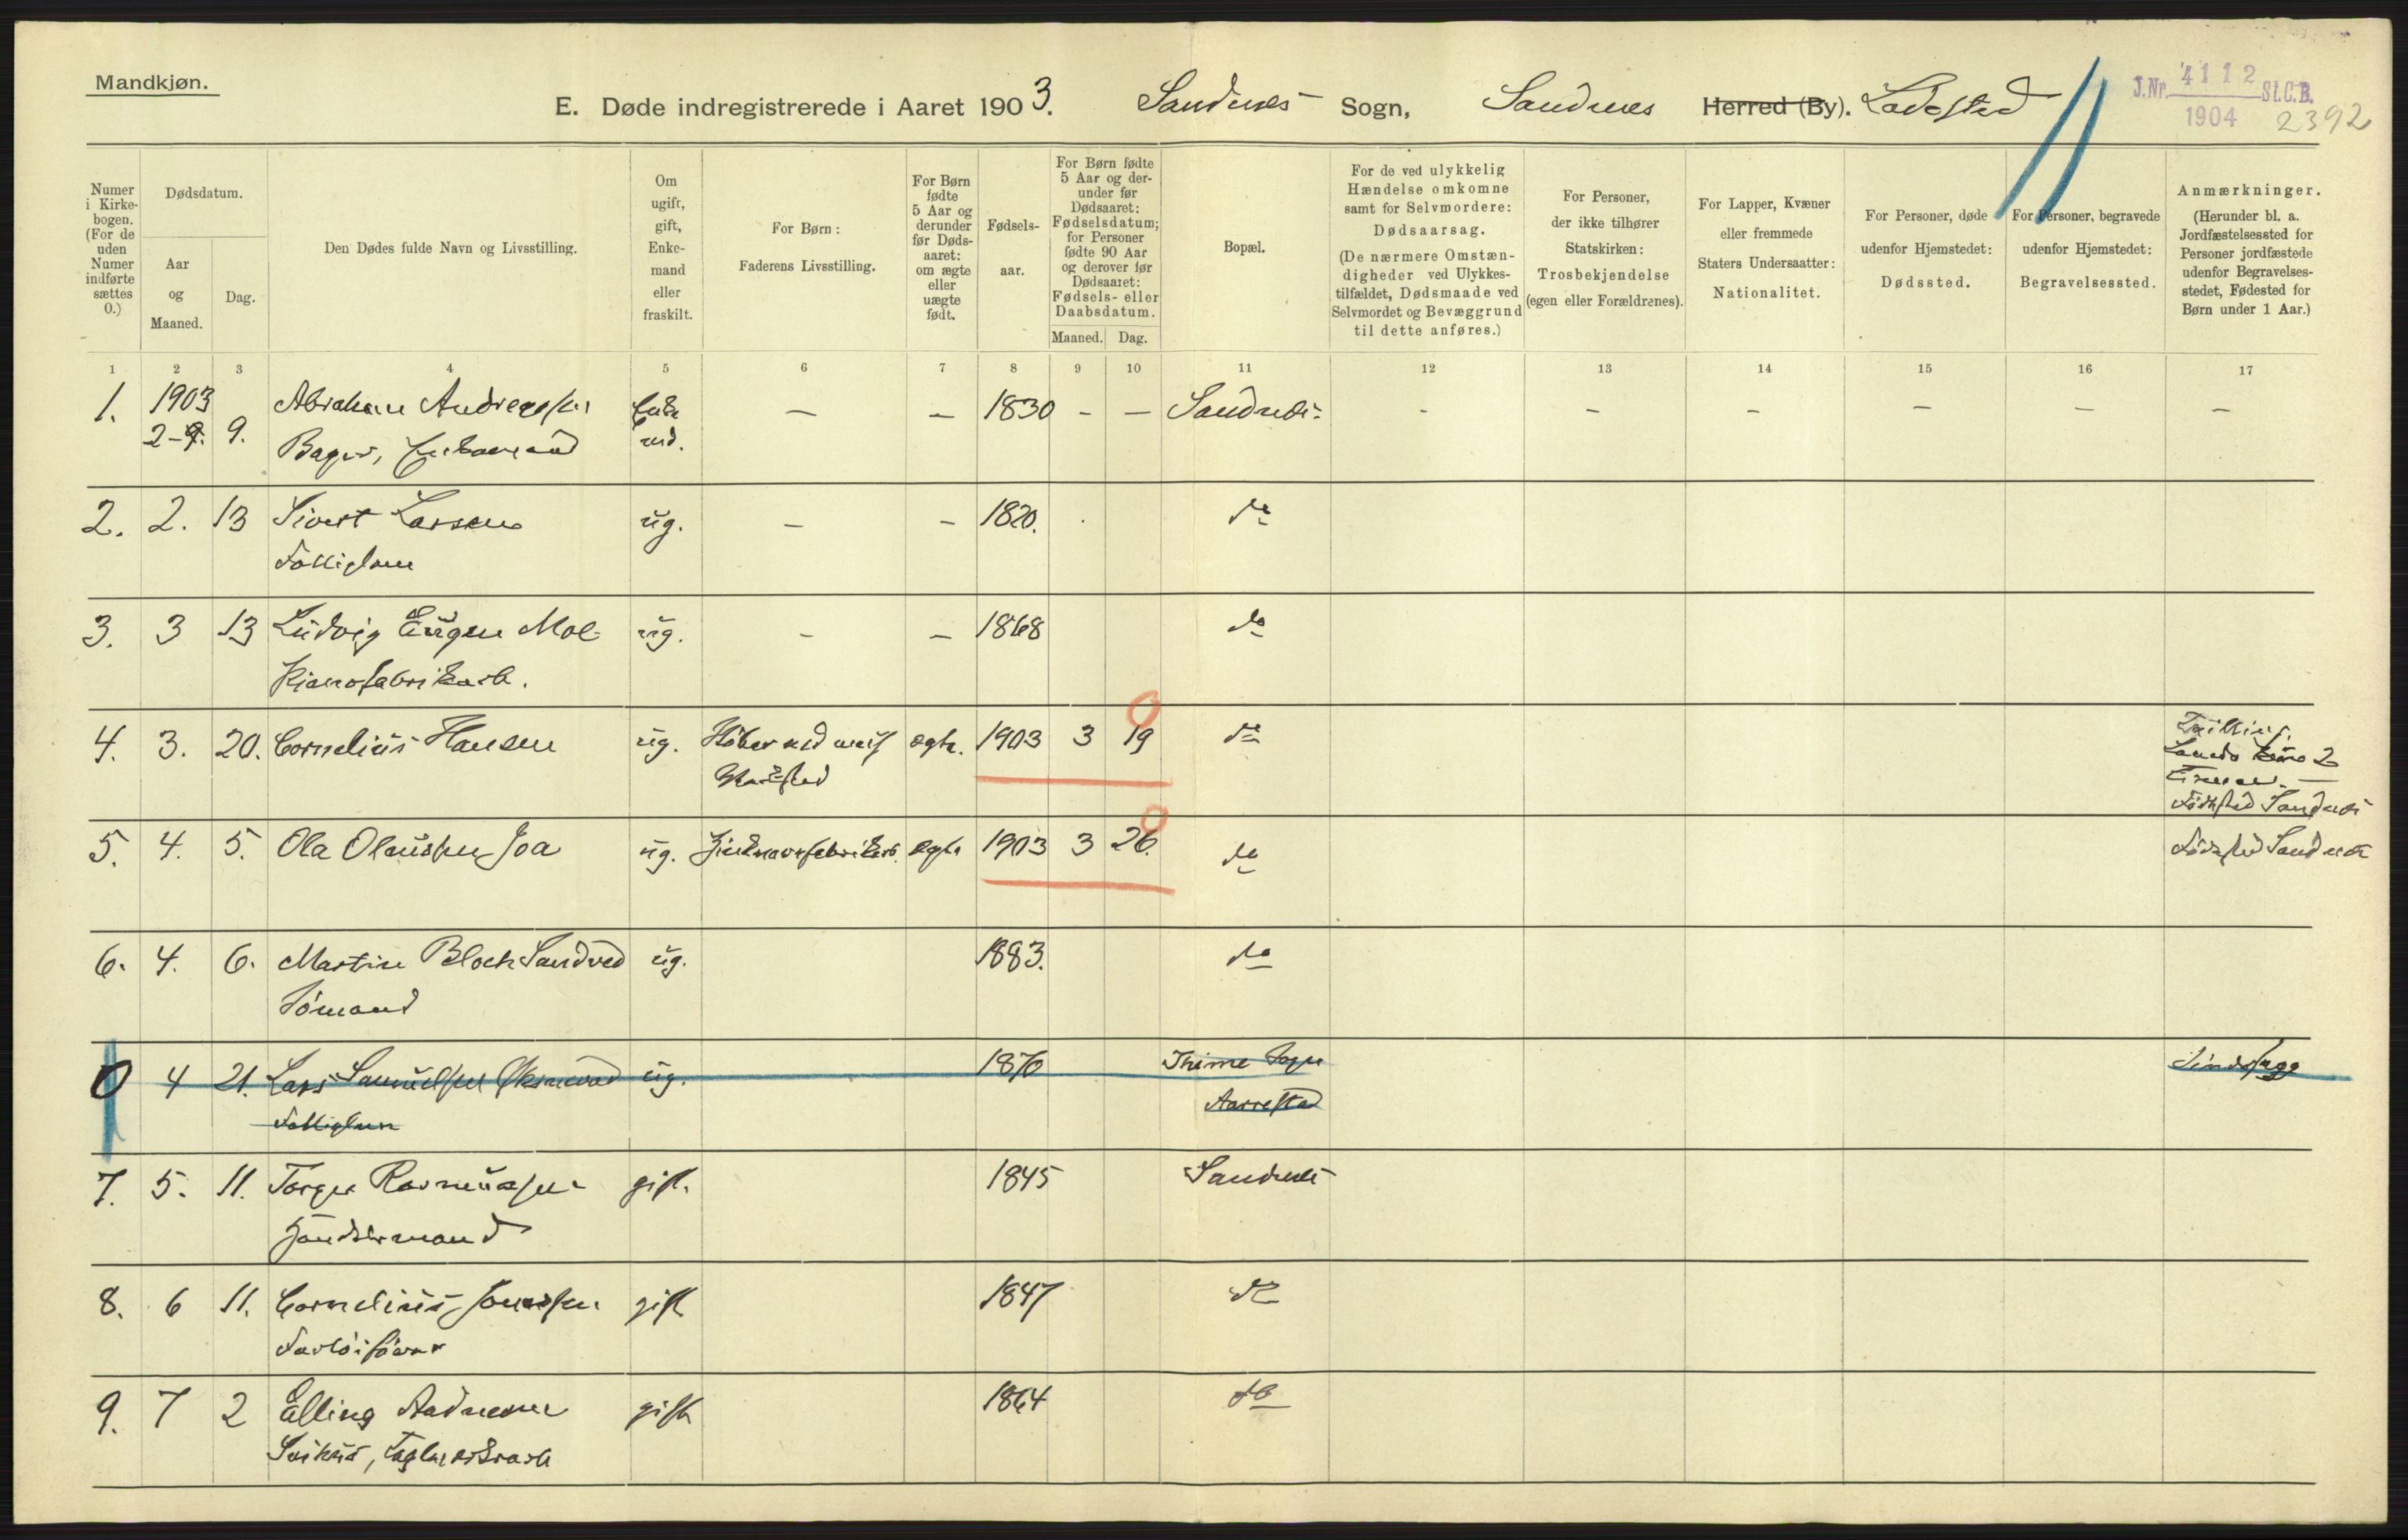 Mandkjøn.
E. Døde indregistrerede i Aaret 1903. Sandnes Sogn, Sandnes Herred (By). Ladested
J.Nr. 4112 St.C.B.
1904 2392
Numer i Kirkebogen. (For de uden Numer indførte sættes 0.)
Dødsdatum.
Aar og Maaned.
Dag.
Den Dødes fulde Navn og Livsstilling.
Om ugift, gift, Enkemand eller fraskilt.
For Børn:
Faderens Livsstilling.
For Børn fødte 5 Aar og derunder før Dødsaaret: om ægte eller uægte født.
Fødselsaar.
For Børn fødte 5 Aar og derunder før Dødsaaret: Fødselsdatum; for Personer fødte 90 Aar og derover før Dødsaaret: Fødsels- eller Daabsdatum.
Maaned. Dag.
Bopæl.
For de ved ulykkelig Hændelse omkomne samt for Selvmordere: Dødsaarsag.
(De nærmere Omstændigheder ved Ulykkestilfældet, Dødsmaade ved Selvmordet og Bevæggrund til dette anføres.)
For Personer, der ikke tilhører Statskirken: Trosbekjendelse (egen eller Forældrenes).
For Lapper, Kvæner eller fremmede Staters Undersaatter: Nationalitet.
For Personer, døde udenfor Hjemstedet: Dødssted.
For Personer, begravede udenfor Hjemstedet: Begravelsessted.
Anmærkninger.
(Herunder bl. a. Jordfæstelsessted for Personer jordfæstede udenfor Begravelsesstedet, Fødested for Børn under 1 Aar.)
1 2 3 4 5 6 7 8 9 10 11 12 13 14 15 16 17
1. 1903 2-9. 9. Abraham Andreassen Enkemd. — — 1830 - — Sandnes - - — — — —
Bager, Enkemand
2. 2. 13 Sivert Larsen ug. — — 1820. do
Fattiglem
3. 3 13 Ludvig Eugen Moe ug. - — 1868 do
Pianofabrikarb.
4. 3. 20. Cornelius Hansen ug. ægte. 1903 3 19 do
Tvilling.
Fødested Sandnes
5. 4. 5. Ola Olaussen Joa ug. ægte 1903 3 26. do Fødested Sandnes
6. 4. 6. Martin Bloch Sandved ug. 1883. do
Sømand
0 4 21. Lars Samuelsen Øksnevad ug. 1870 Thime Sogn Sindssyg
Fattiglem Aarrestad
7. 5. 11. Torger Rasmussen gift. 1845 Sandnes
Handelsmand
8. 6 11. Cornelius Jonassen gift 1847 do
9. 7 2 Elling Aadnesen gift 1864 do
Teglverksarb